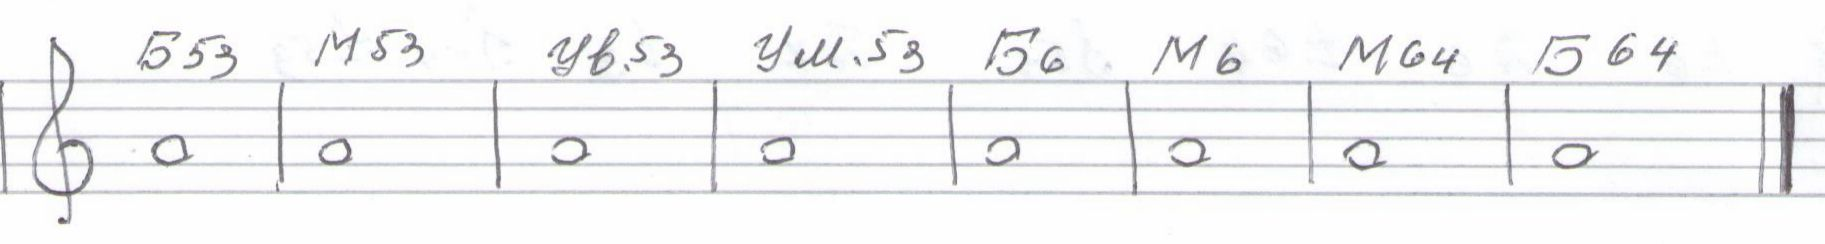 Б53 М53 Ув.53 Ум.53 Б6 М6 М64 Б64